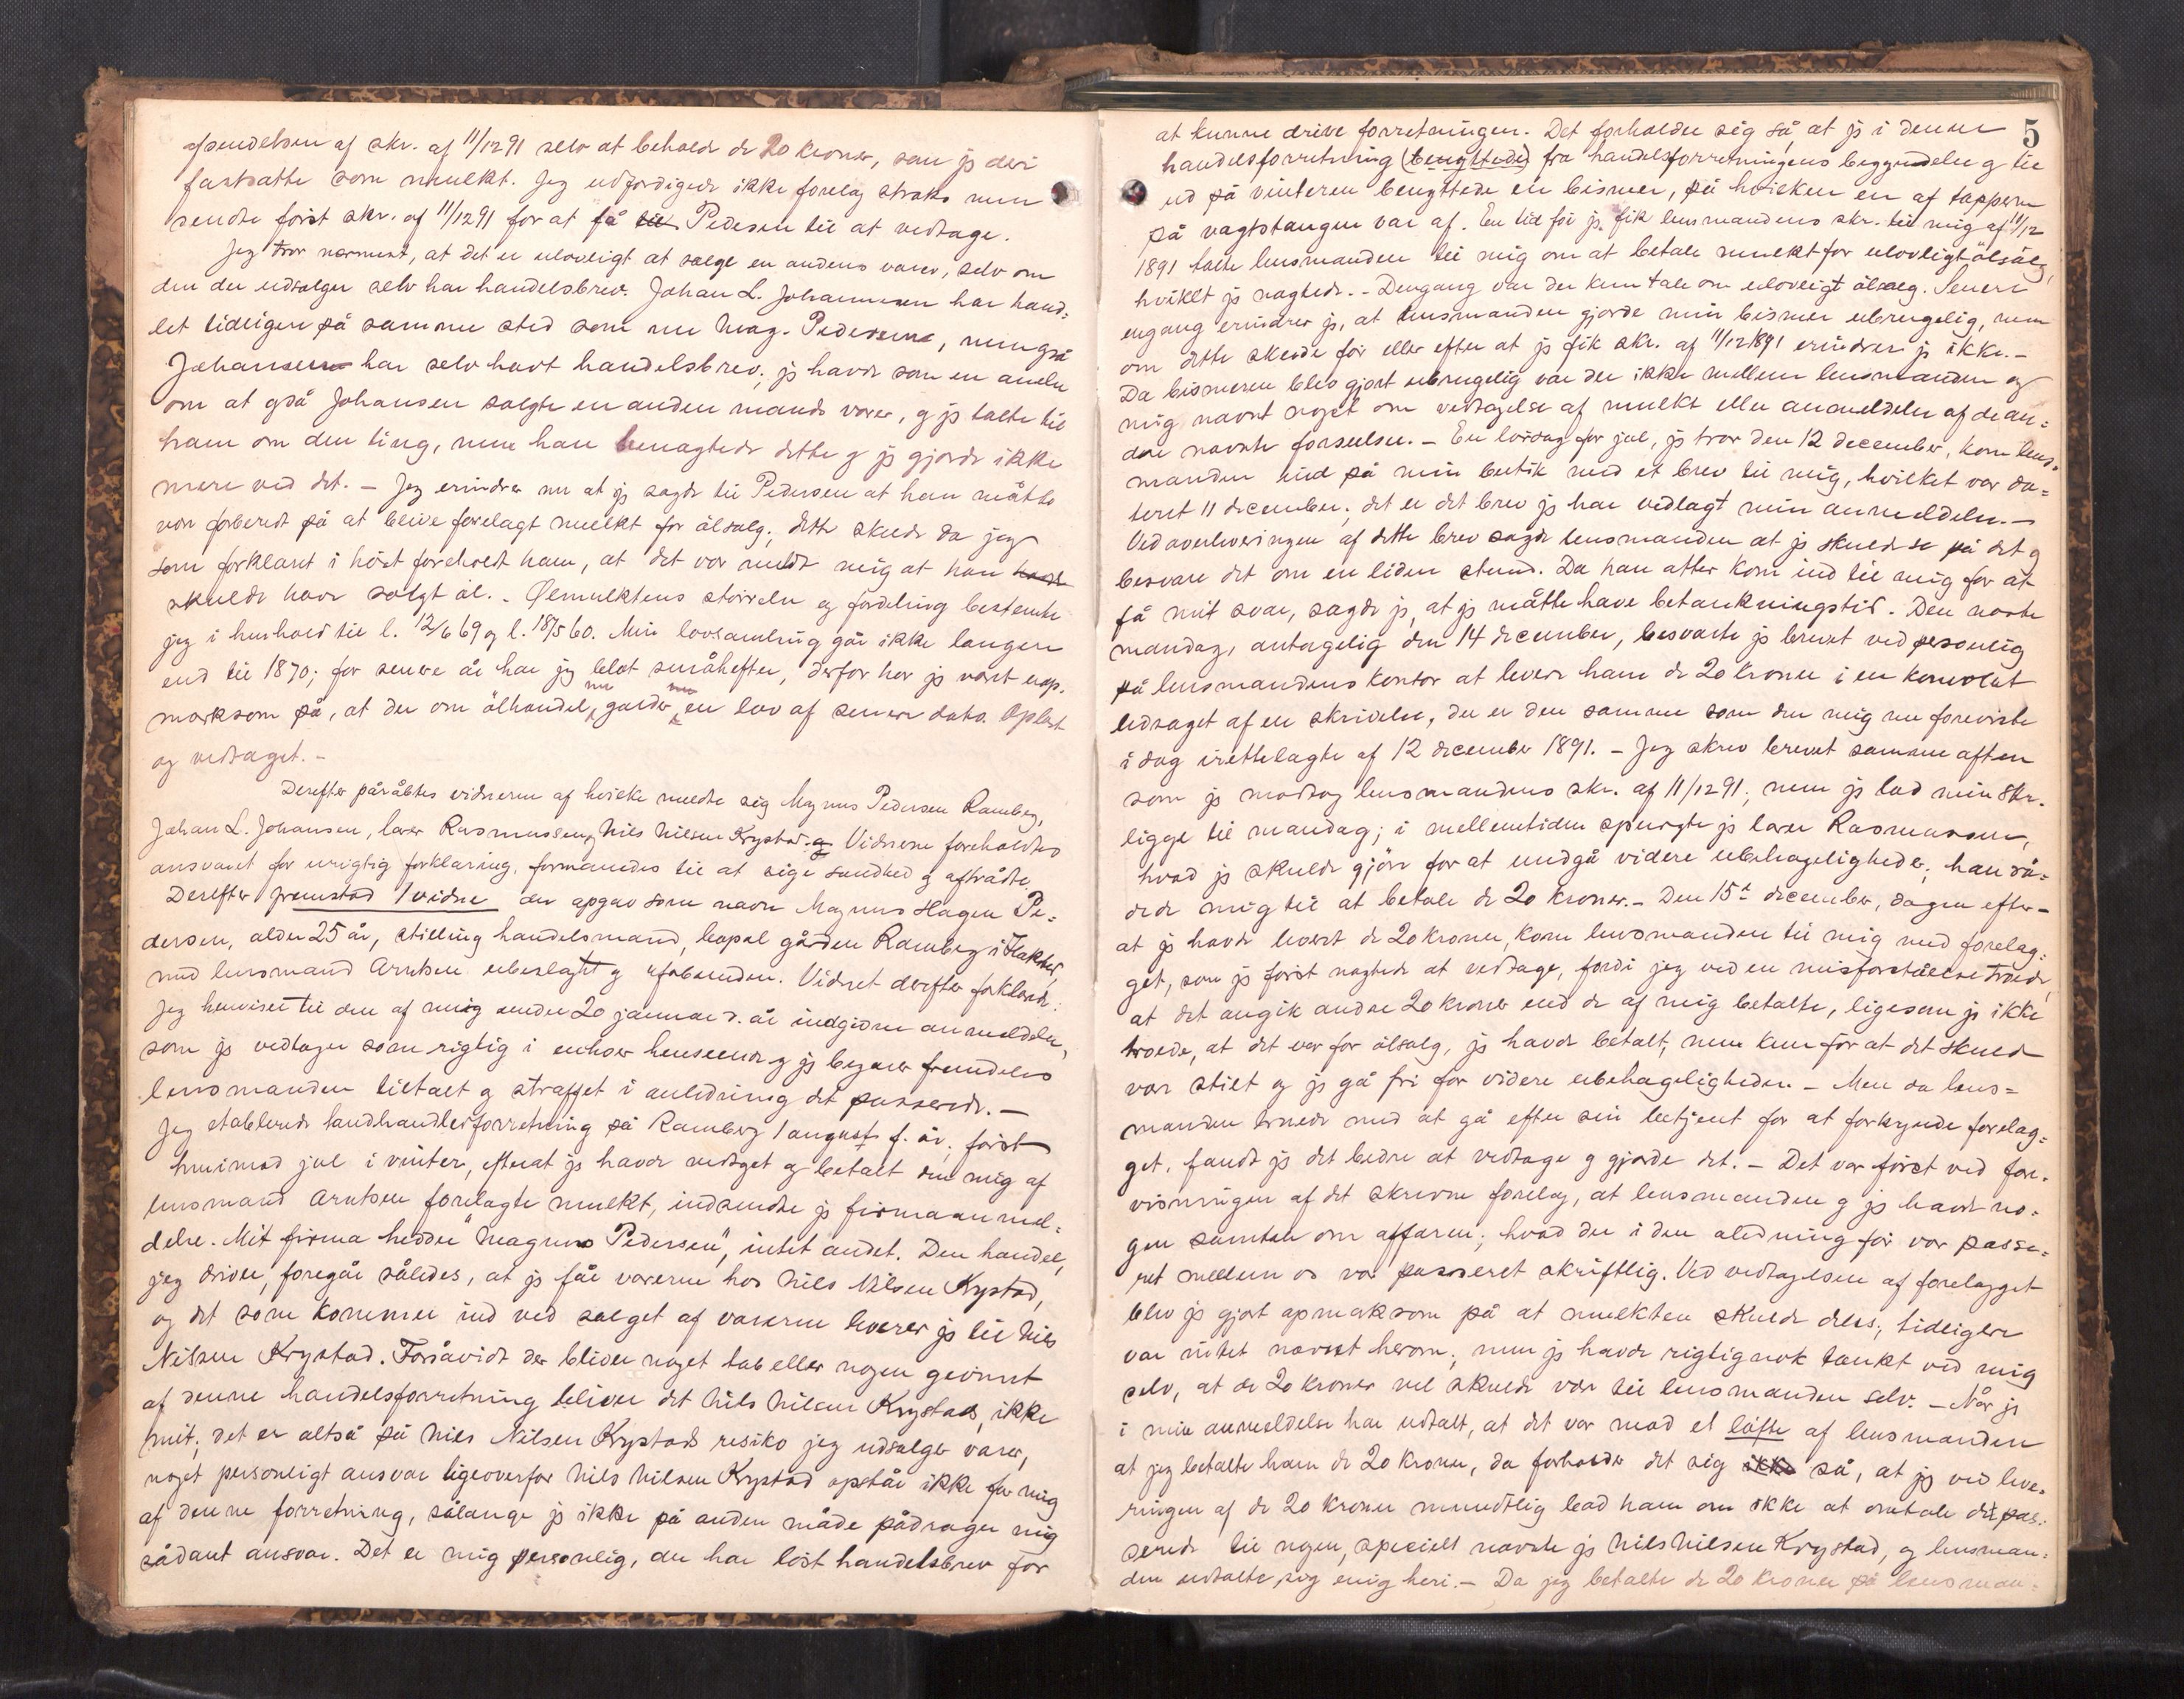 afsendelsen af skr. af 11/12 91 selv at beholde de 20 kroner, som jg deri
fastsatte som mulkt. Jeg udfærdigede ikke forelæg straks men
sendte först skr. af 11/12 91 for at få Pedersen til at vedtage.
Jeg tror nærmest, at det er ulovligt at sælge en andens varer, selv om
den der udsælger selv har handelsbrev. Johan L. Johannesen har hand=
let tidligere på samme sted som nu Mag. Pedersens, men også
Johansen har selv havt handelsbrev; jg havde som en anelse
om at også Johansen solgte en anden mands varer, g jg talte til
ham om den ting, men han benægtede dette g jg gjorde ikke
mere ved det. – Jeg erindrer nu at jg sagde til Pedersen at han måtte
være forberedt på at blive forelagt mulkt for ölsalg; dette skede da jeg
som forklaret i höst foreholdt ham, at det var meldt mig at han
skulde have solgt öl. – Ølmulktens störrelse og fordeling bestemte
jeg i henhold til l. 12/6 69 og l. 18/5 60. Min lovsamling går ikke længere
end til 1870; for senere år har jeg blot småhefter, derfor har jg vært uop.
mærksom på, at der om ölhandel nu gælder en lov af senere dato. Oplæst
og vedtaget. –
Derefter påråbtes vidnerne af hvilke meldte sig Magnus Pedersen Ramberg,
Johan L. Johansen, lærer Rasmussen, Nils Nilsen Krystad. Vidnerne foreholdtes
ansvaret for urigtig forklaring, formanedes til at sige sandhed g aftrådte.
Derefter fremstod 1 vidne der opgav som navn Magnus Hagen Pe=
dersen, alder 25 år, stilling handelsmand, bopæl gården Ramberg i Flakstad,
med lensmand Arntsen ubeslægtet g uforbunden. Vidnet derefter forklarede:
Jeg henviser til den af mig under 20 januar d. år indgivne anmeldelse,
som jg vedtager som rigtig i enhver henseende g jg begærer fremdeles
lensmanden tiltalt g straffet i anledning det passerede. –
Jeg etablerede landhandlerforretning på Ramberg 1 august f. år; först
henimod jul i vinter, efterat jg havde vedtaget og betalt den mig af
lensmand Arntsen forelagte mulkt, indsendte jg firmaanmel=
delse. Mit firma hedder "Magnus Pedersen", intet andet. Den handel,
jeg driver, foregår således, at jg får varerne hos Nils Nilsen Krystad,
og det som kommer ind ved salget af varerne leverer jg til Nils
Nilsen Krystad. Forsåvidt der bliver noget tab eller nogen gevinst
af denne handelsforretning bliver det Nils Nilsen Krystads, ikke
mit; det er altså på Nils Nilsen Krystads resiko jeg udsælger varer,
noget personligt ansvar ligeoverfor Nils Nilsen Krystad opstår ikke for mig
af denne forretning, sålænge jg ikke på anden måde pådrager mig
sådant ansvar. Det er mig personlig, der har löst handelsbrev for
5
at kunne drive forretningen. Det forholder sig så, at jg i denne
handelsforretning (benyttede) fra handelsforretningens begyndelse g til
ud på vinteren benyttede en bismer, på hvilken en af tapperne
på vægtstangen var af. En tid för jg fik lensmandens skr. til mig af 11/12
1891 talte lensmanden til mig om at betale mulkt for ulovligt ölsalg,
hvilket jg nægtede. – Dengang var der kun tale om ulovligt ölsalg. Senere
engang erindrer jg, at lensmanden gjorde min bismer ubrugelig, men
om dette skede för eller efter at jg fik skr. af 11/12 1891 erindrer jg ikke. –
Da bismeren blev gjort ubrugelig var der ikke mellem lensmanden og
mig nævnt noget om vedtagelse af mulkt eller anmeldelse af de an=
dre nævnte forseelser. – En lördag för jul, jg tror den 12 december, kom lens=
manden ind på min butik med et brev til mig, hvilket var da=
teret 11 december; det er det brev jg har vedlagt min anmeldelse. –
Ved overleveringen af dette brev sagde lensmanden at jg skulde se på det g
besvare det om en liden stund. Da han atter kom ind til mig for at
få mit svar, sagde jg, at jg måtte have betænkningstid. Den næste
mandag, antagelig den 14 december, besvarte jg brevet ved personlig
på lensmandens kontor at levere ham de 20 kroner i en konvolut
ledsaget af en skrivelse, der er den samme som den mig nu foreviste
i dag irettelagte af 12 december 1891. – Jeg skrev brevet samme aften
som jg modtog lensmandens skr. af 11/12 91; men jg lod min skr.
ligge til mandag; i mellemtiden spurgte jg lærer Rasmussen,
hvad jg skulde gjöre for at undgå videre ubehageligheder; han rå=
dede mig til at betale de 20 kroner. – Den 15de december, dagen efter-
at jg havde levert de 20 kroner, kom lensmanden til mig med forelæg=
get, som jg först nægtede at vedtage, fordi jeg ved en misforståelse troede
at det angik andre 20 kroner end de af mig betalte, ligesom jg ikke
troede, at det var for ölsalg, jg havde betalt, men kun för at det skulde
vær stilt og jg gå fri for videre ubehageligheder. – Men da lens=
manden truede med at gå efter sin betjent for at forkynde forelæg=
get, fandt jg det bedre at vedtage g gjorde det. – Det var först ved fore.
visningen af det skrevne forelæg, at lensmanden g jg havde no=
gen samtale om affæren; hvad der i den aledning för var passe=
ret mellem os var passeret skriftlig. Ved vedtagelsen af forelægget
blev jg gjort opmærksom på at mulkten skulde deles; tidligere
var intet nævnt herom; men jg havde rigtignok tænkt ved mig
selv, at de 20 kroner vel skulde være til lensmanden selv. – Når jg
i min anmeldelse har udtalt, at det var mod et löfte af lensmanden
at jeg betalte ham de 20 kroner, da forholder det sig så, at jg ved leve=
ringen af de 20 kroner mundtlig bad ham om ikke at omtale det pas=
serede til nogen, specielt nævnte jg Nils Nilsen Krystad, og lensman=
den udtalte sig enig heri. – Da jeg betalte de 20 kroner på lensman=